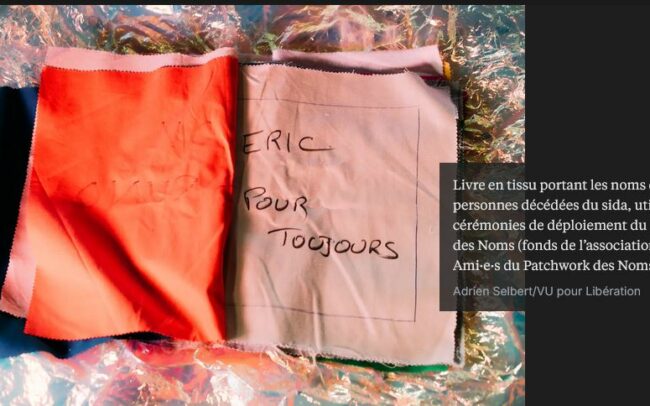 ERIC
POUR
TOUJOURS
Livre en tissu portant les noms
personnes décédées du sida, uti
cérémonies de déploiement du
des Noms (fonds de l'association
Ami·e·s du Patchwork des Noms
Adrien Selbert/VU pour Libération